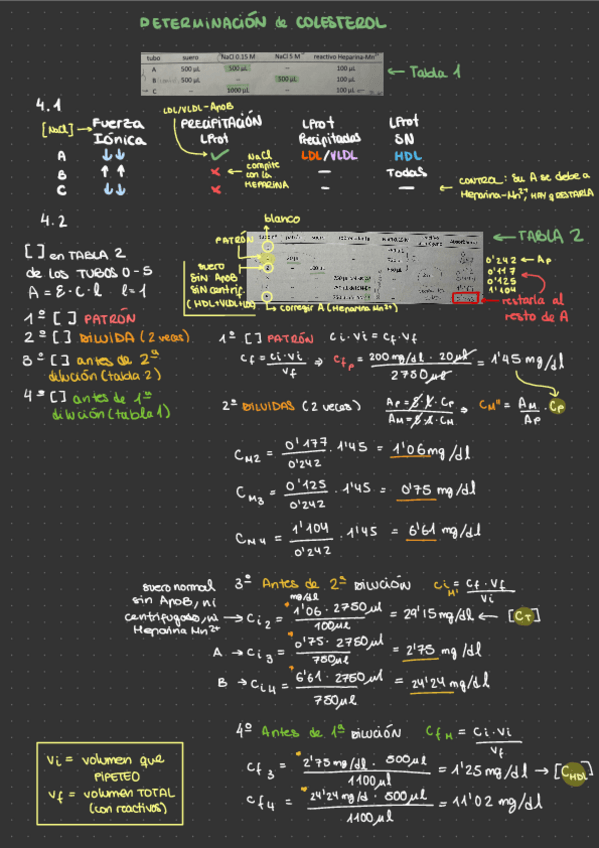 DETERMINACIÓN de COLESTEROL
tubo suero NaCl 0.15 M NaCl 5 M reactivo Heparina-Mn
A 500 µL 500 µL – 100 µL
B 500 µL – 500 µL 100 µL
C – 1000 µL – 100 µL
← Tabla 1
4.1
LDL/VLDL-ApoB
[NaCl] → FUERZA IÓNICA
PRECIPITACIÓN LProt
LProt Precipitadas
LProt SN
A ↓↓ ✓ LDL/VLDL HDL
B ↑↑ × – Todas
C ↓↓ × – –
← NaCl compite con la HEPARINA
← CONTROL: Su A se debe a Heparina-Mn²⁺, HAY q RESTARLA
4.2
blanco
PATRÓN
← TABLA 2
[ ] en TABLA 2
de los TUBOS 0-5
A = ε·C·l l=1
suero
SIN ApoB
SIN centrif.
(HDL+VLDL+LDL)
→ corregir A (Heparina Mn²⁺)
0'242 ← Ap
0'117
0'125
1'104
→ restarla al
resto de A
1º [ ] PATRÓN
2º [ ] DILUIDA (2 veces)
3º [ ] antes de 2ª
dilución (tabla 2)
4º [ ] antes de 1ª
dilución (tabla 1)
1º [ ] PATRÓN Ci·Vi = Cf·Vf
Cf = Ci·Vi / Vf ⇒ Cfp = 200 mg/dl · 20 µl / 2750 µl = 1'45 mg/dl
2º DILUIDAS (2 veces) Ap = ε·l·Cp / AM = ε·l·CM ⇒ CM'' = AM / Ap · Cp
CM2 = 0'177 / 0'242 · 1'45 = 1'06 mg/dl
CM3 = 0'125 / 0'242 · 1'45 = 0'75 mg/dl
CM4 = 1'104 / 0'242 · 1'45 = 6'61 mg/dl
3º Antes de 2ª DILUCIÓN CiM' = Cf·Vf / Vi
suero normal
sin ApoB, ni
centrifugado, ni
Heparina Mn²⁺
→ Ci2 = 1'06 mg/dl · 2750 µl / 100 µl = 29'15 mg/dl ← [CT]
A → Ci3 = 0'75 · 2750 µl / 750 µl = 2'75 mg/dl
B → Ci4 = 6'61 · 2750 µl / 750 µl = 24'24 mg/dl
4º Antes de 1ª DILUCIÓN CfM = Ci·Vi / Vf
Cf3 = 2'75 mg/dl · 500 µl / 1100 µl = 1'25 mg/dl → [CHDL]
Cf4 = 24'24 mg/d · 500 µl / 1100 µl = 11'02 mg/dl
Vi = volumen que
PIPETEO
Vf = volumen TOTAL
(con reactivos)